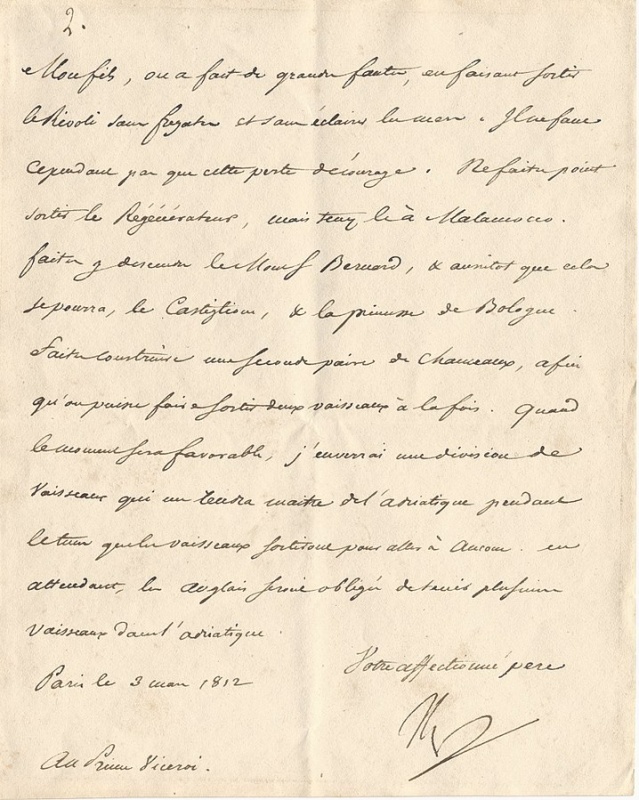 2.
Mon fils, on a fait de grandes fautes, en faisant sortir
le Rivoli sans fregates et sans éclairer la mer. Il ne faut
cependant pas que cette perte décourage. Ne faites point
sortir le Régénérateur, mais tenez le à Malamocco.
faites y descendre le Mont St Bernard, & aussitot que cela
se pourra, le Castiglione, & la princesse de Bologne.
Faites construire une seconde paire de Chameaux, afin
qu'on puisse faire sortir deux vaisseaux à la fois. Quand
le moment sera favorable, j'enverrai une division de
vaisseaux qui me rendra maitre de l'adriatique pendant
le tems que les vaisseaux sortiront pour aller à Ancone. en
attendant, les anglais seront obligés de tenir plusieurs
vaisseaux dans l'adriatique.
Votre affectionné pere
Paris le 3 mars 1812
Au Prince Viceroi.